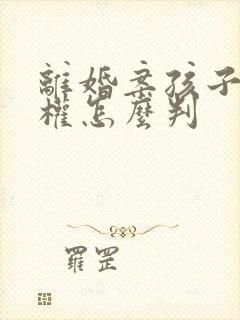 離婚案孩子
權怎麼判
羅罡